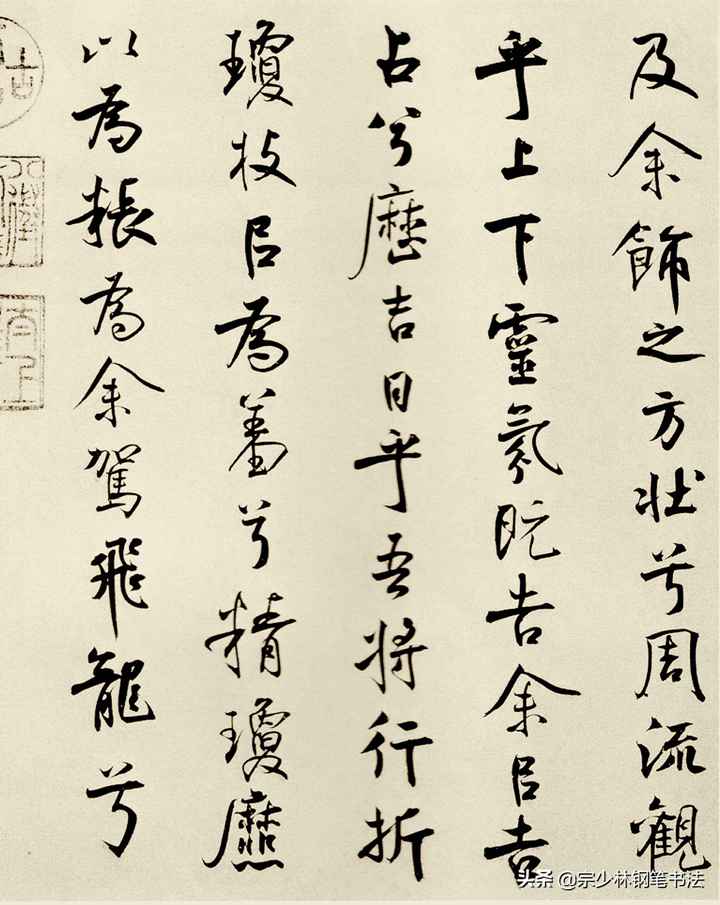 及余飾之方壯兮周流觀
乎上下靈氛既告余㠯吉
占兮歷吉日乎吾將行折
瓊枝㠯為羞兮精瓊爢
以為粻為余駕飛龍兮
头条 @宗少林钢笔书法